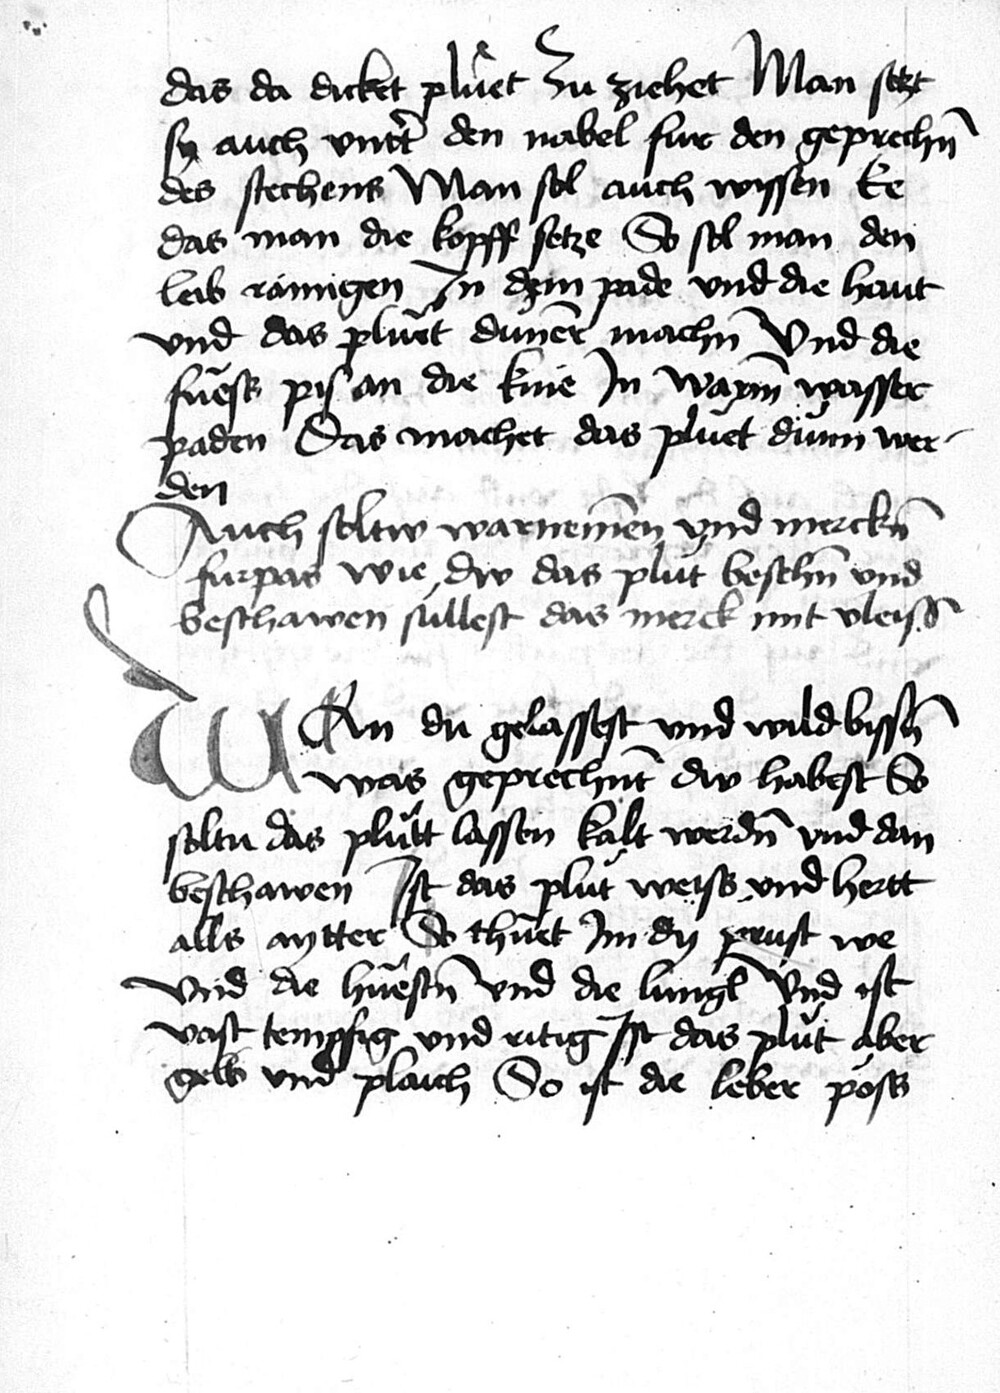 das da dicket plůet Zu ziehet Man setzt
sy auch vntt̄ den nabel fur den geprechn̄
des stechens Man sol auch wissen Ee
das man die kopff setze So sol man den
leib rainigen In dem pade vnd die haut
vnd das plůet dunēr machn̄ Vnd die
fůess pis an die knie In warm̄ wasser
paden Das machet das plůet dünn wer-
den
Auch soltw warnemēn vnd merckn̄
furpas wie dw das plůt besehn̄ vnd
beschawen sullest das merck mit vleiss
WAn du gelassest vnd wild bissn̄
was geprechn̄t dw habest So
soltu das plůtt lassen kalt werdn̄ vnd dan
beschawen Ist das plůt weiss vnd hertt
alls aytter So thůet Im dy prust we
Vnd die hůestn̄ vnd die lungl Vnd ist
vast tempffig vnd ritig Ist das plůt aber
gelb vnd plaich So ist die leber pöss